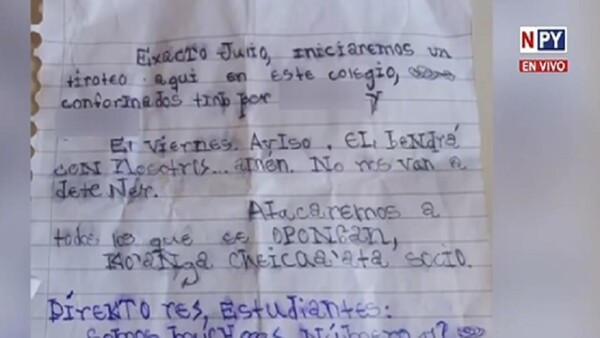 NPY
EN VIVO
Exacto Julio, iniciaremos un
tiroteo aqui en este colegio,
conforinados tinb por y
El Viernes. Aviso. El bendrá
con nosotris... amén. No nos van a
deteNér.
Atacaremos a
todos los que se OPONGAN,
Ko'anga cheicaa'ata socio.
DÍREKTORES, EStudiantes:
Somos